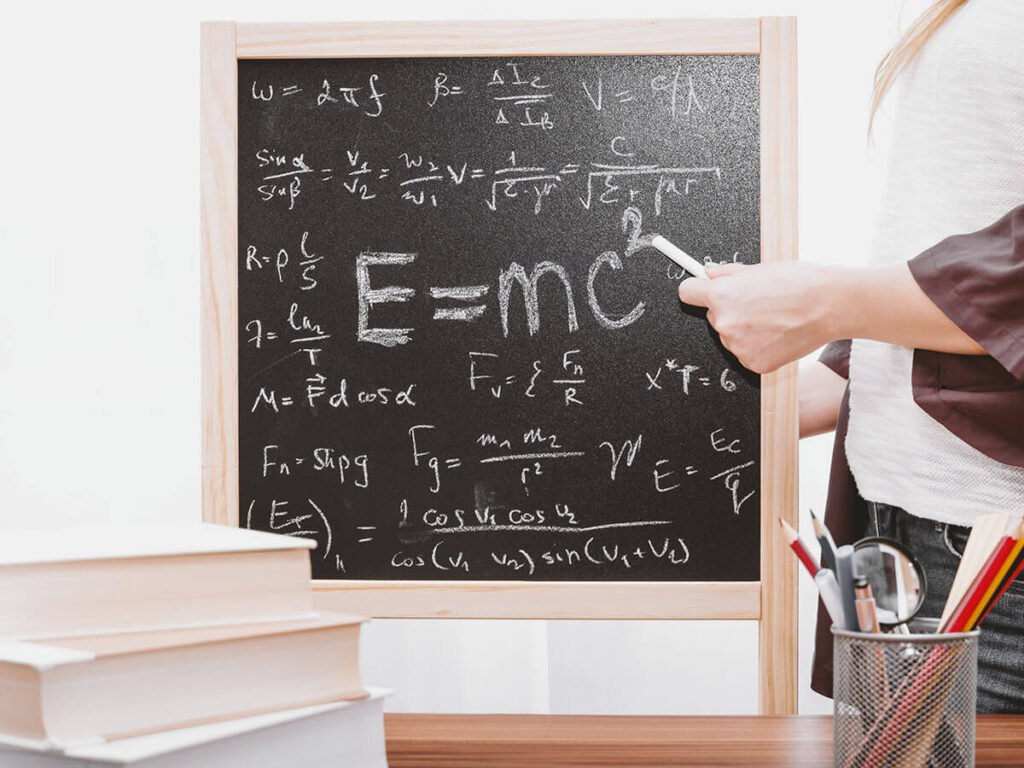 w = 2πf β = ΔI₂/ΔIβ V = c/λ
sin α/sin β = v₁/v₂ = w₂/w₁ V = 1/√ε·μ = c/√εr μr
R = ρ l/S
E = mc²
ln₂/T
M = F⃗ d cos α Fᵥ = { Fₙ/R x* T = 6
Fₙ = Shρg F_g = m₁ m₂/r² E = Ec/q
= 1 cos v₁ cos v₂/cos(v₁ v₂) sin(v₁+v₂)